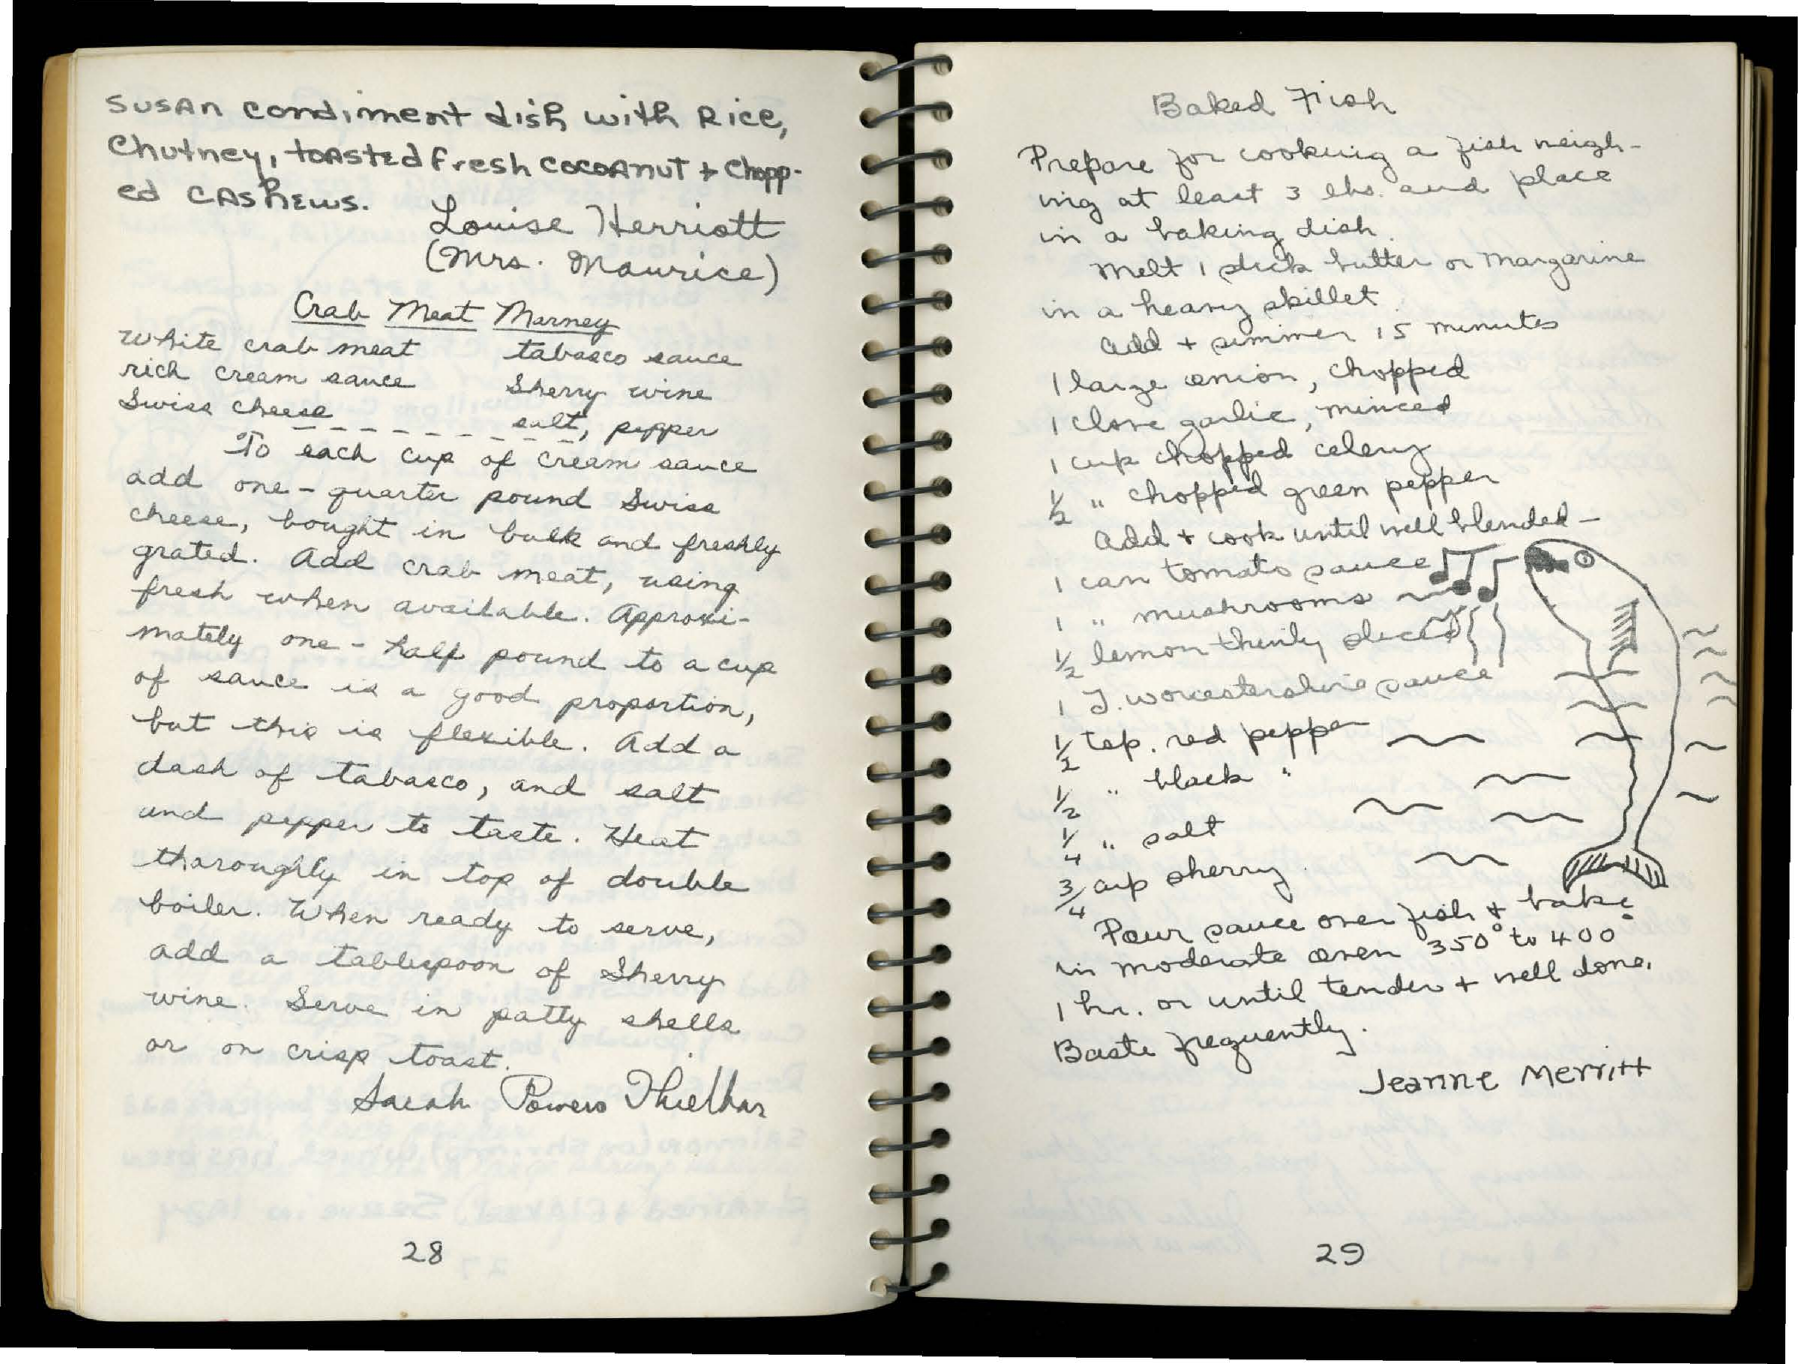 SUSAN condiment dish with Rice,
Chutney, toasted fresh cocoanut + chopp-
ed cashews.
Louise Herriott
(Mrs. Maurice)
Crab Meat Marney
White crab meat tabasco sauce
rich cream sauce Sherry wine
Swiss cheese salt, pepper
To each cup of cream sauce
add one-quarter pound Swiss
cheese, bought in bulk and freshly
grated. Add crab meat, using
fresh when available. Approxi-
mately one-half pound to a cup
of sauce is a good proportion,
but this is flexible. Add a
dash of tabasco, and salt
and pepper to taste. Heat
thoroughly in top of double
boiler. When ready to serve,
add a tablespoon of Sherry
wine. Serve in patty shells
or on crisp toast.
Sarah Powers Thielbar
28
Baked Fish
Prepare for cooking a fish weigh-
ing at least 3 lbs. and place
in a baking dish.
Melt 1 stick butter or margarine
in a heavy skillet.
Add + simmer 15 minutes
1 large onion, chopped
1 clove garlic, minced
1 cup chopped celery
1/2 " chopped green pepper
Add + cook until well blended -
1 can tomato sauce
1 " mushrooms
1/2 lemon thinly sliced
1 T. worcestershire sauce
1/2 tsp. red pepper
1/2 " black "
1/4 " salt
3/4 cup sherry.
Pour sauce over fish + bake
in moderate oven 350° to 400°
1 hr. or until tender + well done.
Baste frequently.
Jeanne Merritt
29